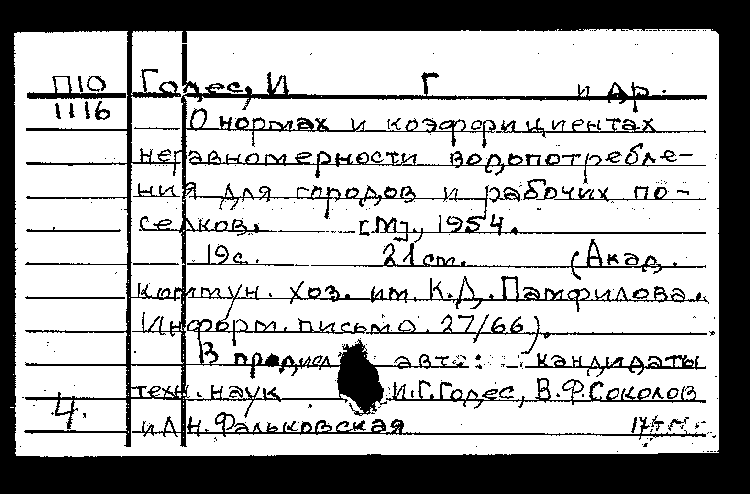 П10 Годес, И Г и др.
1116
О нормах и коэффициентах
неравномерности водопотребле-
ния для городов и рабочих по-
селков. [М], 1954.
19с. 21см. (Акад.
коммун. хоз. им. К.Д. Памфилова.
Информ. письмо. 27/66).
В предисл авт: кандидаты
техн. наук И.Г. Годес, В.Ф. Соколов
4. и А.Н. Фальковская